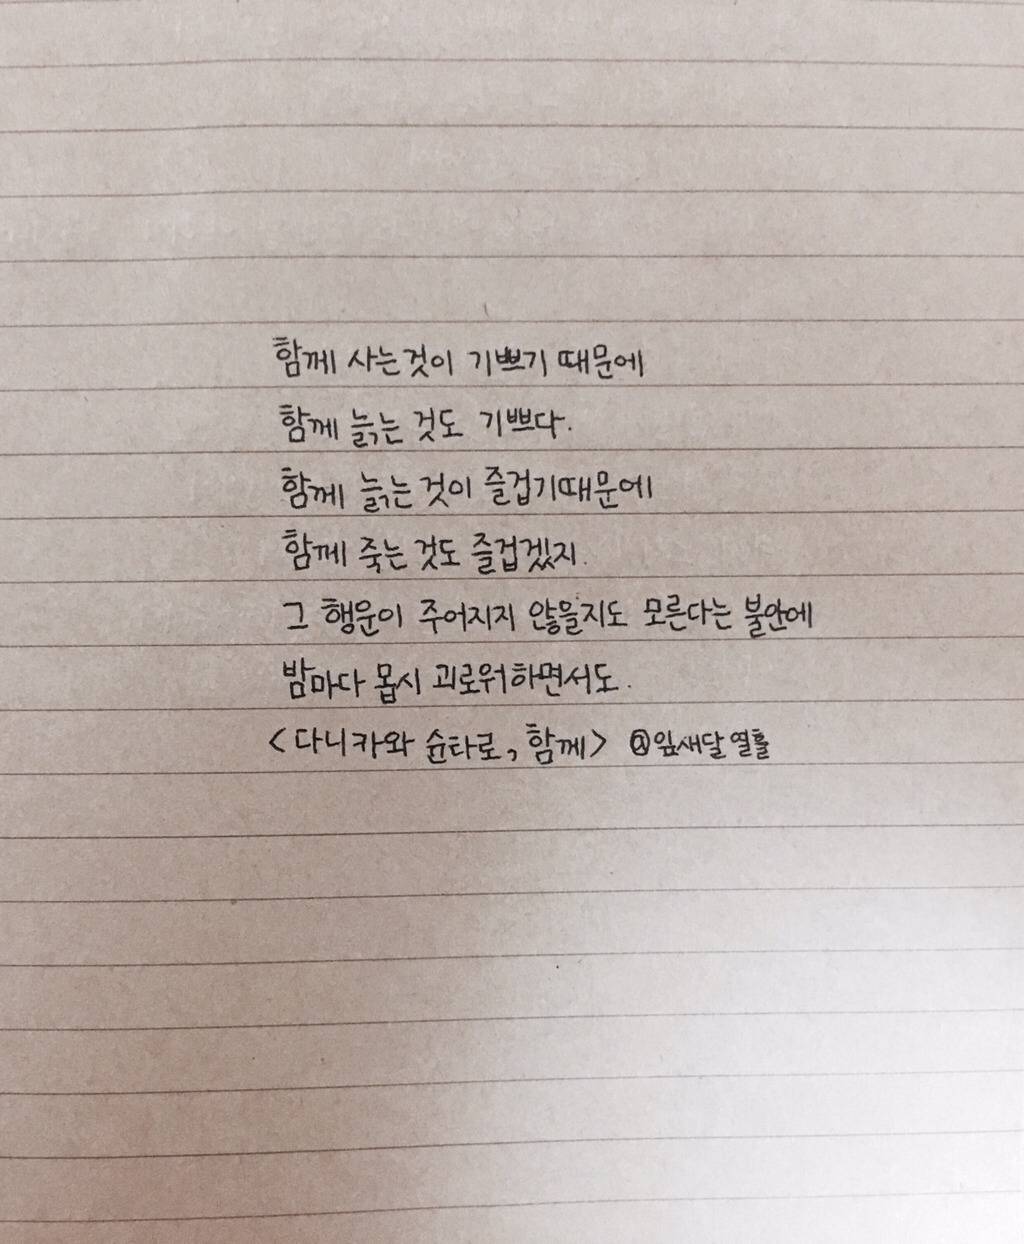 함께 사는것이 기쁘기 때문에
함께 늙는 것도 기쁘다.
함께 늙는 것이 즐겁기때문에
함께 죽는 것도 즐겁겠지.
그 행운이 주어지지 않을지도 모른다는 불안에
밤마다 몹시 괴로워하면서도.
<다니카와 슌타로, 함께> @잎새달열흘